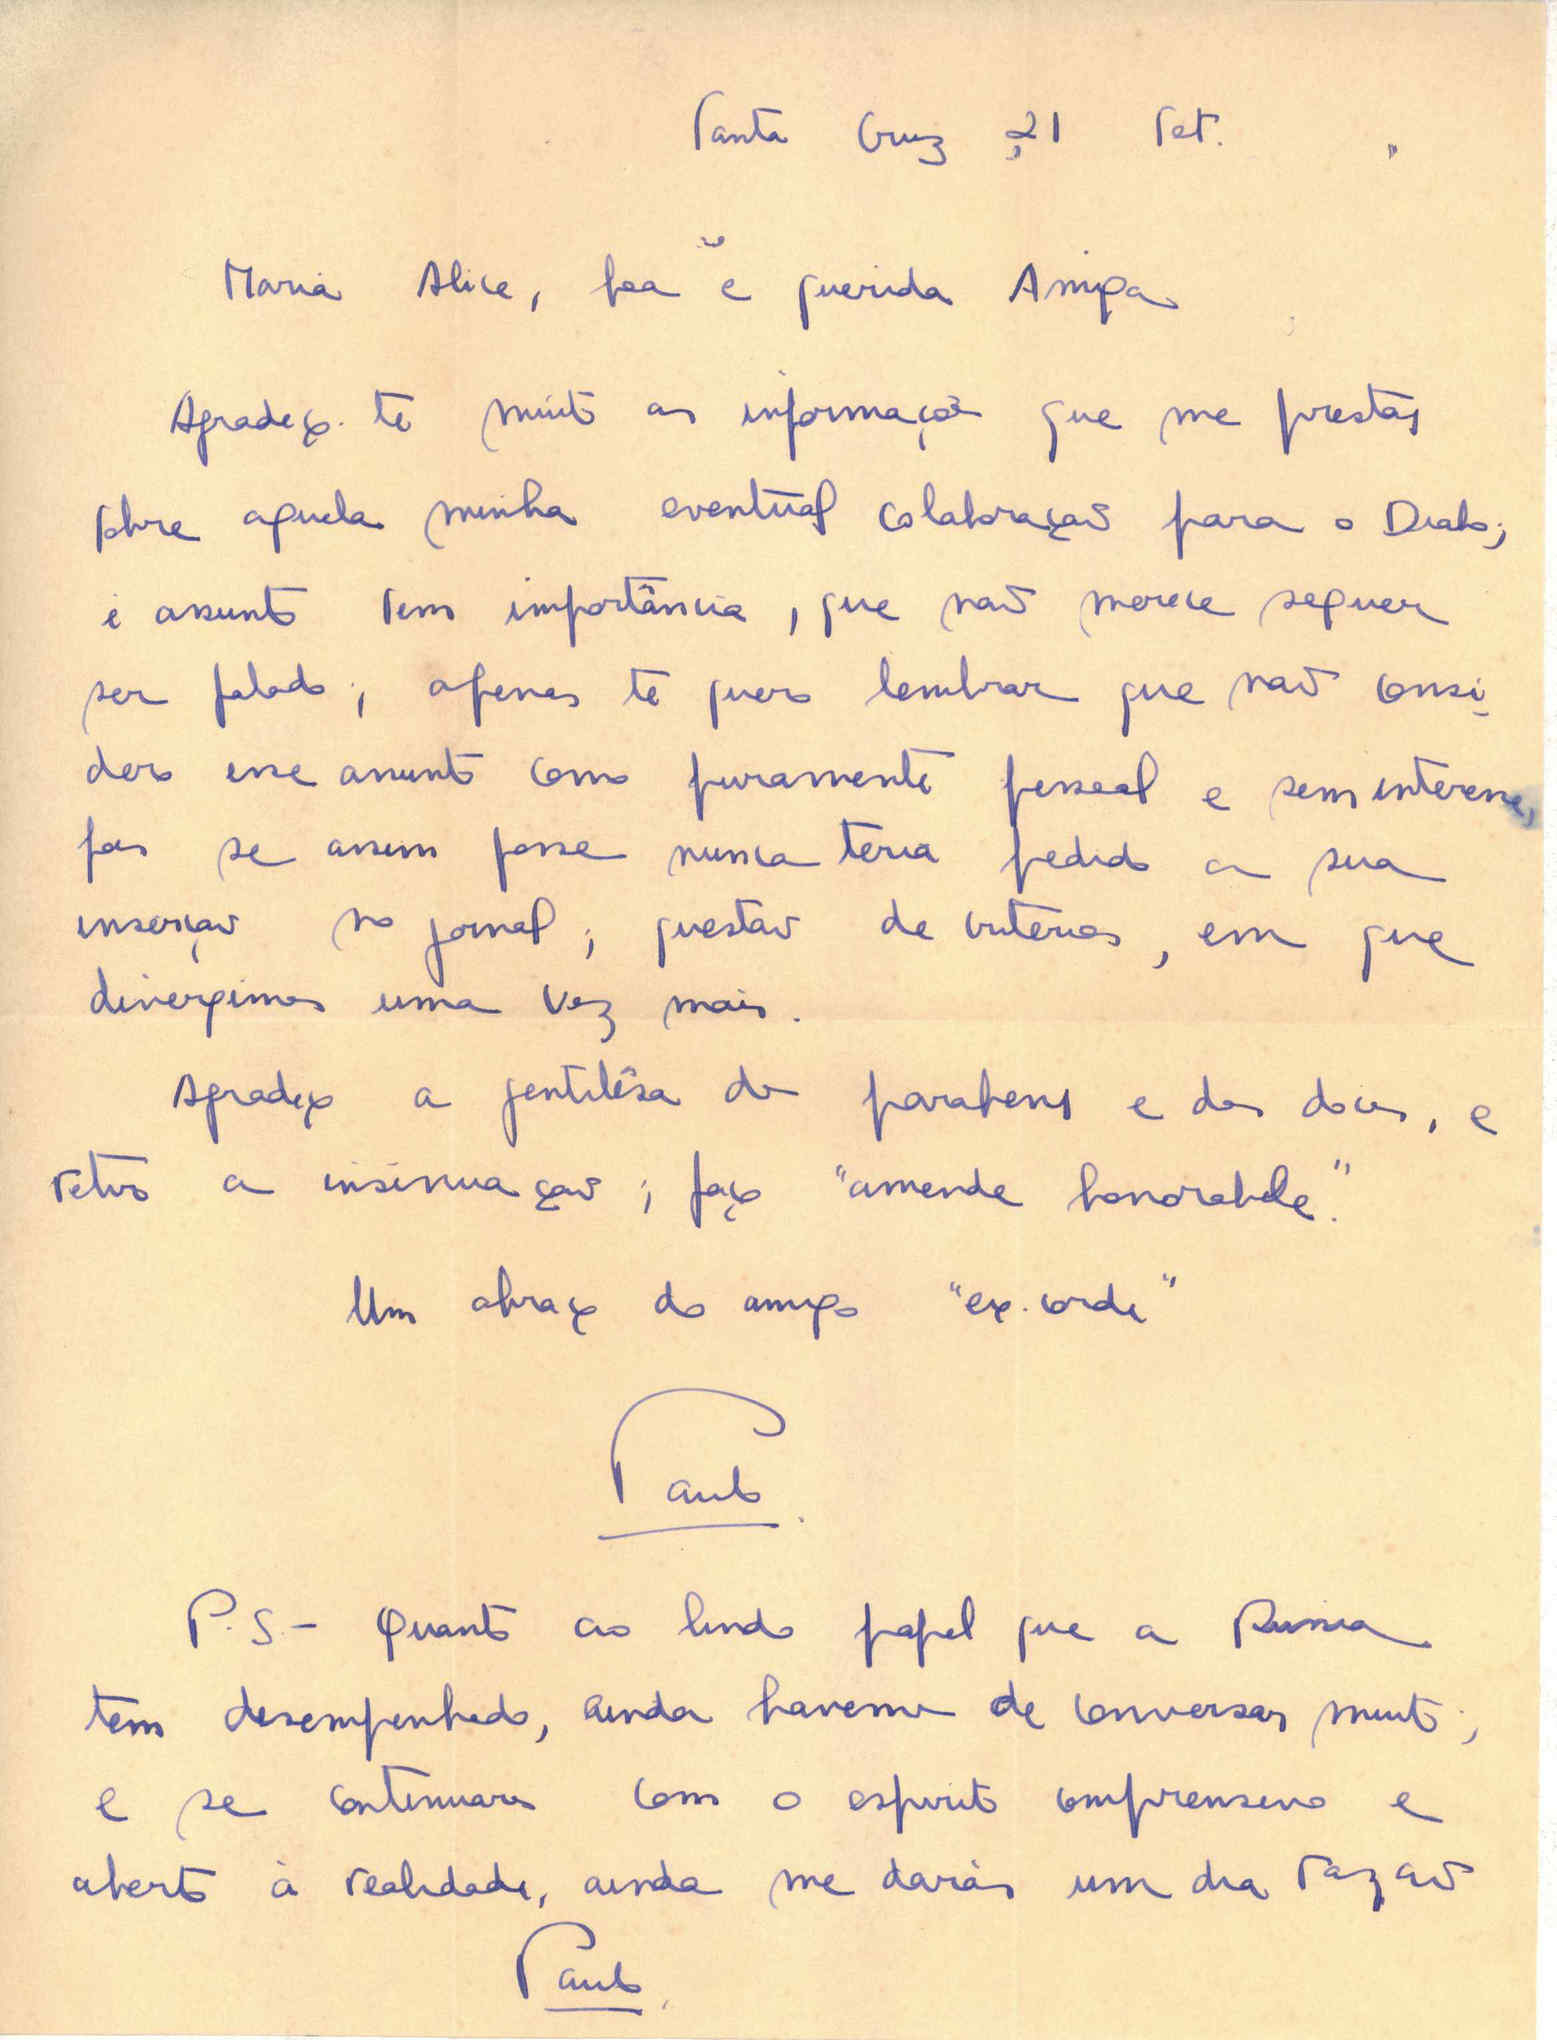 Santa Cruz 21 Set.
Maria Alice, boa e querida Amiga
Agradeço-te muito as informações que me prestas
sobre aquela minha eventual colaboração para o Diabo;
é assunto sem importância, que não merece sequer
ser falado; apenas te quero lembrar que não consi-
dero esse assunto como puramente pessoal e sem interesse,
pois se assim fosse nunca teria pedido a sua
inserção no jornal; questão de critérios, em que
divergimos uma vez mais.
Agradeço a gentilêsa dos parabens e dos doces, e
retiro a insinuação; faço "amende honorable".
Um abraço do amigo "ex-corde"
Paulo
P.S.- Quanto ao lindo papel que a Russia
tem desempenhado, ainda havemos de conversar muito;
e se continuares com o espirito comprensivo e
aberto à realidade, ainda me darás um dia razão
Paulo